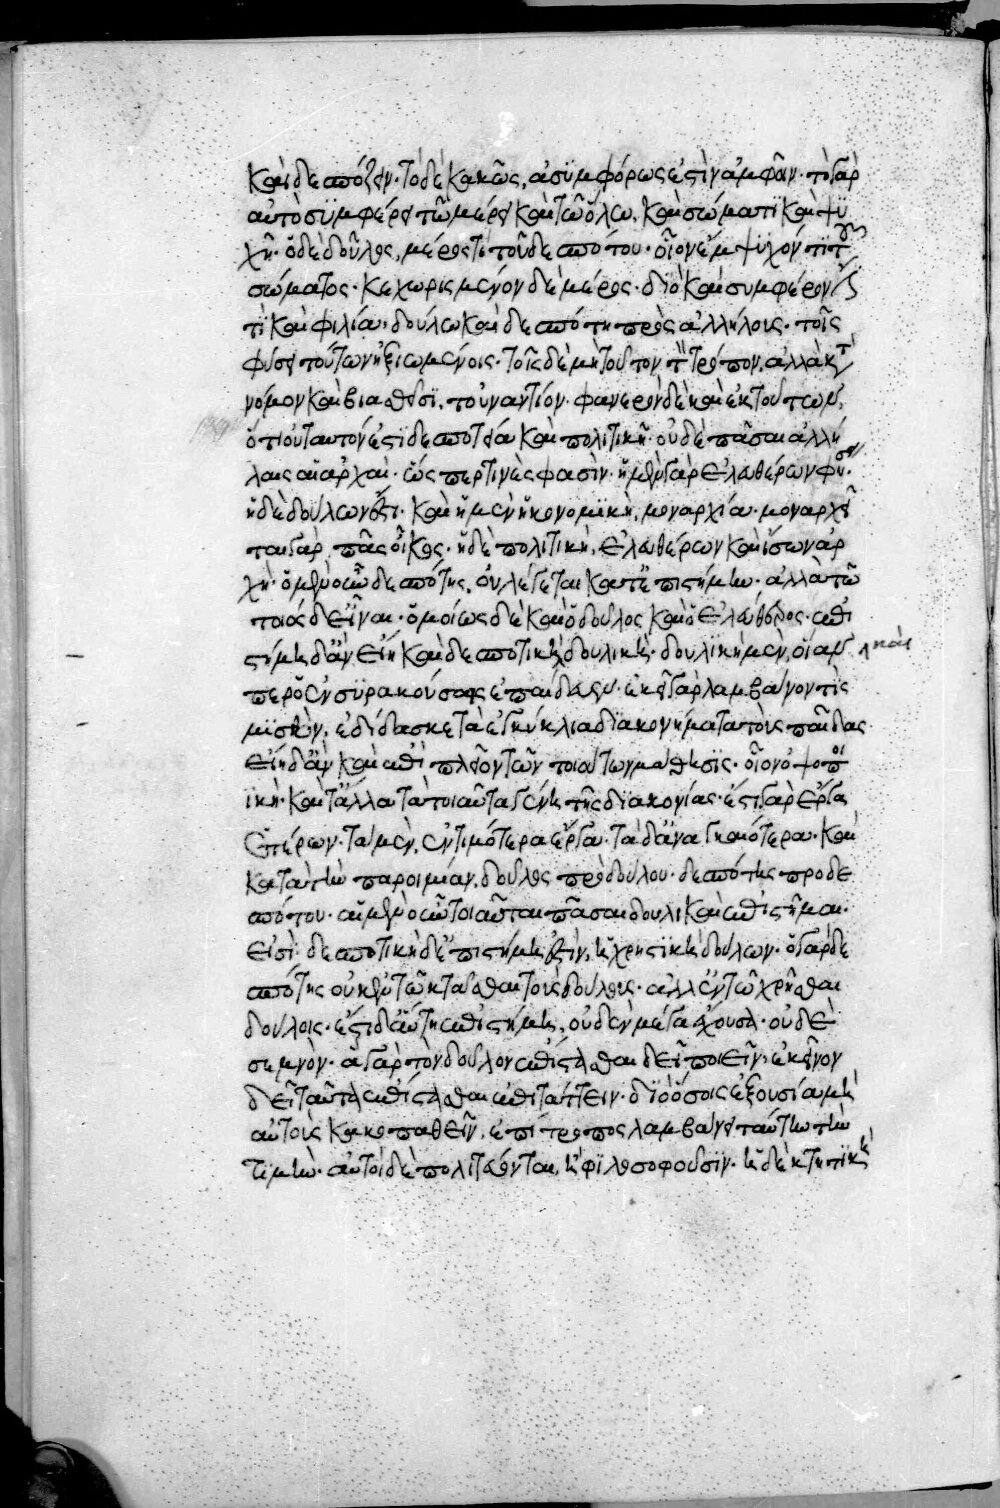 καὶ δεσπόζειν· τὸ δὲ κακῶς, ἀσυμφόρως ἐστὶν ἀμφοῖν· τὸ γὰρ
αὐτὸ συμφέρει τῶ μέρει καὶ τῶ ὅλω, καὶ σώματι καὶ ψυ
χῆ· ὁ δὲ δοῦλος, μέρος τι τοῦ δεσπότου· οἷον ἔμψυχόν τι τοῦ
σώματος· κεχωρισμένον δὲ μέρος· διὸ καὶ συμφέρον ἐστί
τι καὶ φιλία, δούλω καὶ δεσπότη πρὸς ἀλλήλους· τοῖς
φύσει τούτων ἠξιωμένοις· τοῖς δὲ μὴ τοῦτον τὸν τρόπον, ἀλλὰ κατὰ
νόμον καὶ βιασθεῖσι, τοὐναντίον· φανερὸν δὲ καὶ ἐκ τούτων,
ὅτι οὐ ταυτόν ἐστι δεσποτεία καὶ πολιτικὴ· οὐδὲ πᾶσαι ἀλλή
λαις αἱ ἀρχαὶ· ὥς περ τινὲς φασὶν· ἡ μὲν γὰρ ἐλευθέρων φύσει·
ἡ δὲ δούλων ἐστι· καὶ ἡ μὲν ἡ κονομικὴ, μοναρχία· μοναρχεῖ
ται γὰρ πᾶς οἶκος· ἡ δὲ πολιτικὴ, ἐλευθέρων καὶ ἴσων ἀρ
χὴ· ὁ μὲν οὖν δεσπότης, οὐ λέγεται κατ ἐπιστήμην· ἀλλὰ τῶ
ποιόσδε εἶναι· ὁμοίως δὲ καὶ ὁ δοῦλος καὶ ὁ ἐλεύθερος· ἐπι
στήμη δ ἂν εἴη καὶ δεσποτικὴ δουλικὴ· δουλικὴ μὲν, οἵαν
περ ὁ ἐν συρακούσαις ἐπαίδευεν· ἐκεῖ γὰρ λαμβάνοντις
μισθὸν, ἐδίδασκε τὰ ἐγκύκλια διακονήματα τοὺς παῖδας·
εἴη δ ἂν καὶ ἐπὶ πλεῖον τῶν τοιούτων μάθησις· οἷον ὀψοποι
ικὴ· καὶ τἄλλα τὰ τοιαῦτα γένη τῆς διακονίας· ἔστι γὰρ ἔργα
ἑτέρων· τὰ μὲν, ἐντιμότερα ἔργα· τὰ δ ἀναγκαιότερα· καὶ
κατὰ τὴν παροιμίαν, δοῦλος πρὸ δούλου· δεσπότης πρὸ δε
σπότου· αἱ μὲν οὖν τοιαῦται πᾶσαι δουλικαὶ ἐπιστῆμαι
εἰσὶ· δεσποτικὴ δ ἐπιστήμη ἐστὶν, ἡ χρηστικὴ δούλων· ὁ γὰρ δε
σπότης οὐκ ἐν τῶ κτᾶσθαι τοὺς δούλους· ἀλλ ἐν τῶ χρῆσθαι
δούλοις· ἔστι δ αὕτη ἐπιστήμη, οὐδὲν μέγα ἔχουσα· οὐδὲ
σεμνὸν· ἃ γὰρ τὸν δοῦλον ἐπίστασθαι δεῖ ποιεῖν, ἐκεῖνον
δεῖ ταῦτα ἐπίστασθαι ἐπιτάττειν· διὸ ὅσοις ἐξουσία μὴ
αὐτοὺς κακοπαθεῖν, ἐπίτροπος λαμβάνει ταύτην τὴν
τιμὴν· αὐτοὶ δὲ πολιτεύονται, ἢ φιλοσοφοῦσιν· ἡ δὲ κτητικὴ